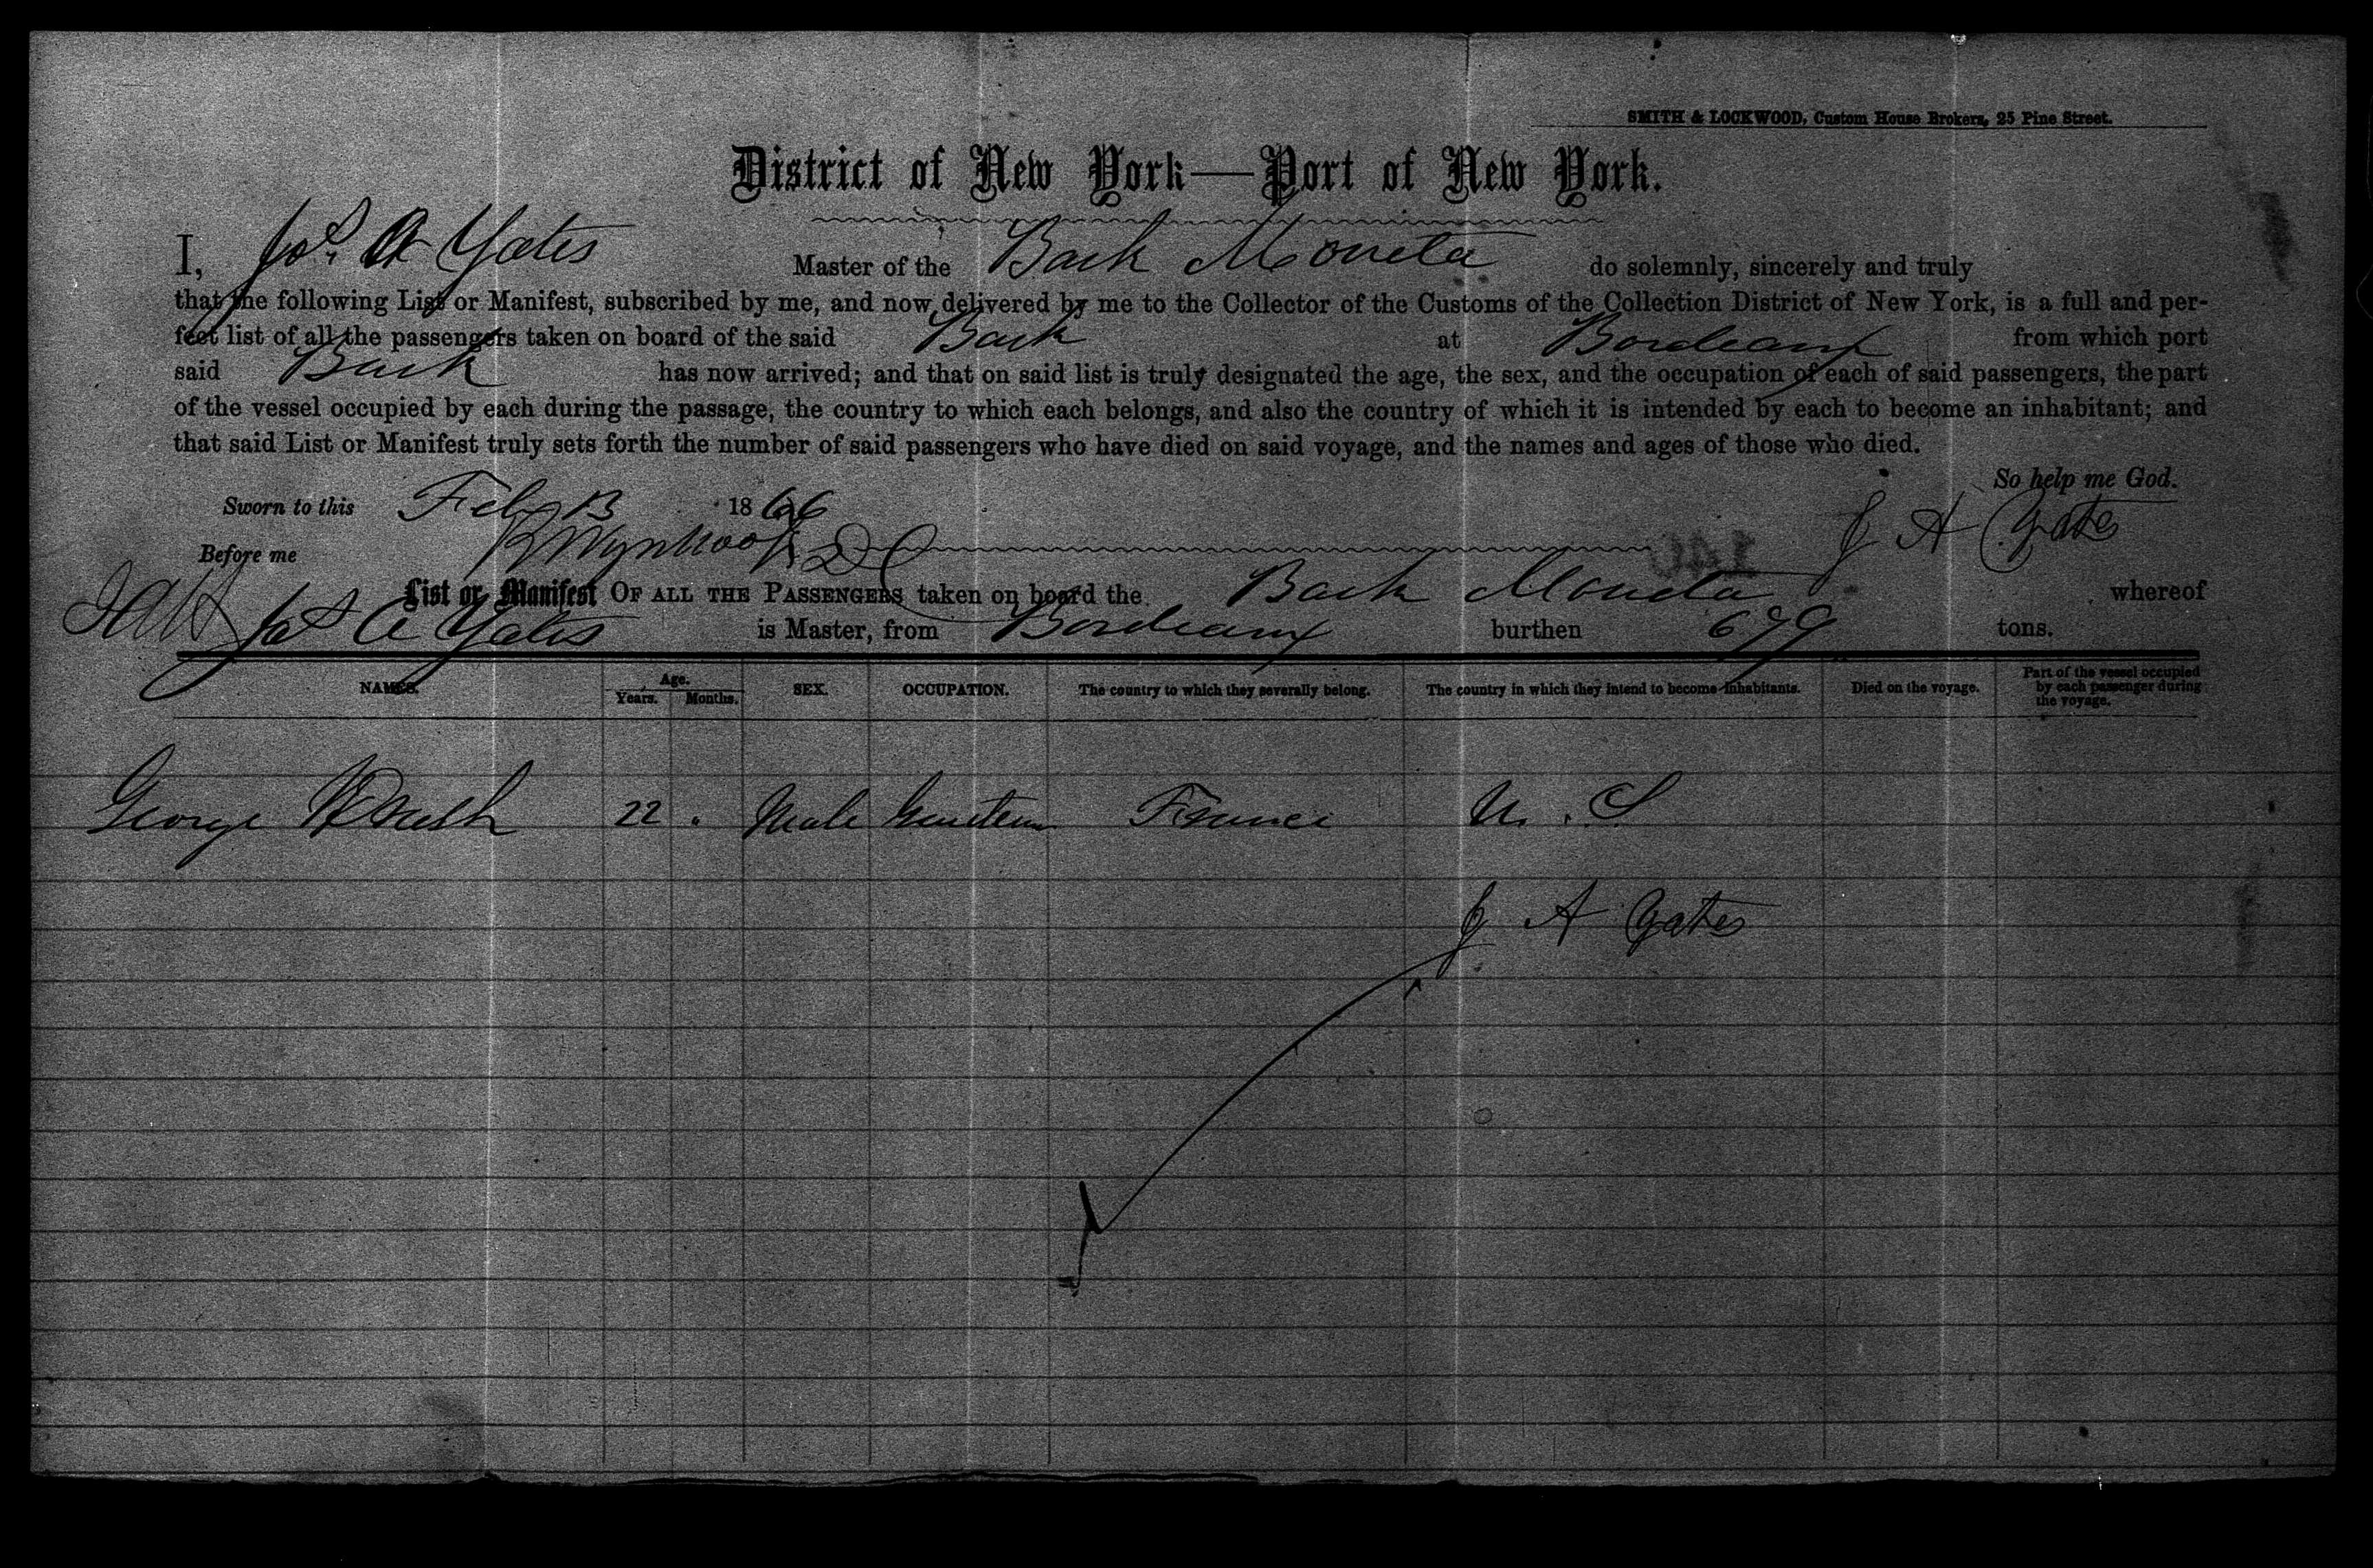 SMITH & LOCKWOOD, Custom House Brokers, 25 Pine Street.
District of New York—Port of New York.
I, Jas. A Yates Master of the Bark Moneta do solemnly, sincerely and truly
that the following List or Manifest, subscribed by me, and now delivered by me to the Collector of the Customs of the Collection District of New York, is a full and per-
fect list of all the passengers taken on board of the said Bark at Bordeaux from which port
said Bark has now arrived; and that on said list is truly designated the age, the sex, and the occupation of each of said passengers, the part
of the vessel occupied by each during the passage, the country to which each belongs, and also the country of which it is intended by each to become an inhabitant; and
that said List or Manifest truly sets forth the number of said passengers who have died on said voyage, and the names and ages of those who died.
So help me God.
Sworn to this Feby 13 1866
J A Yates
Before me
List or Manifest OF ALL THE PASSENGERS taken on board the Bark Moneta whereof
Jas A Yates is Master, from Bordeaux burthen 679 tons.
NAMES. Age. Years. Months. SEX. OCCUPATION. The country to which they severally belong. The country in which they intend to become inhabitants. Died on the voyage. Part of the vessel occupied by each passenger during the voyage.
George 22 " Male France U. S
J A Yates